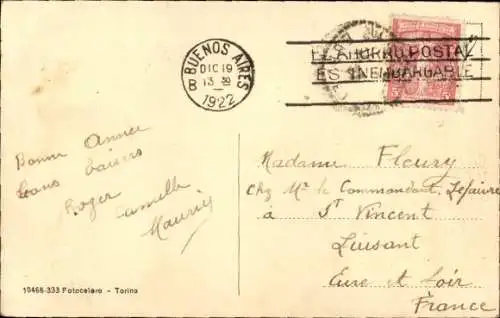 BUENOS AIRES
DIC 19
13 30
B
1922
EL AHORRO POSTAL
ES INEMBARGABLE
Bonne Année
bons baisers
Roger
Camille
Maurice
Madame Fleury
Chz Mr le Commandant Lefaivre
à St Vincent
Luisant
Eure et Loir
France
10468-333 Fotocelere - Torino